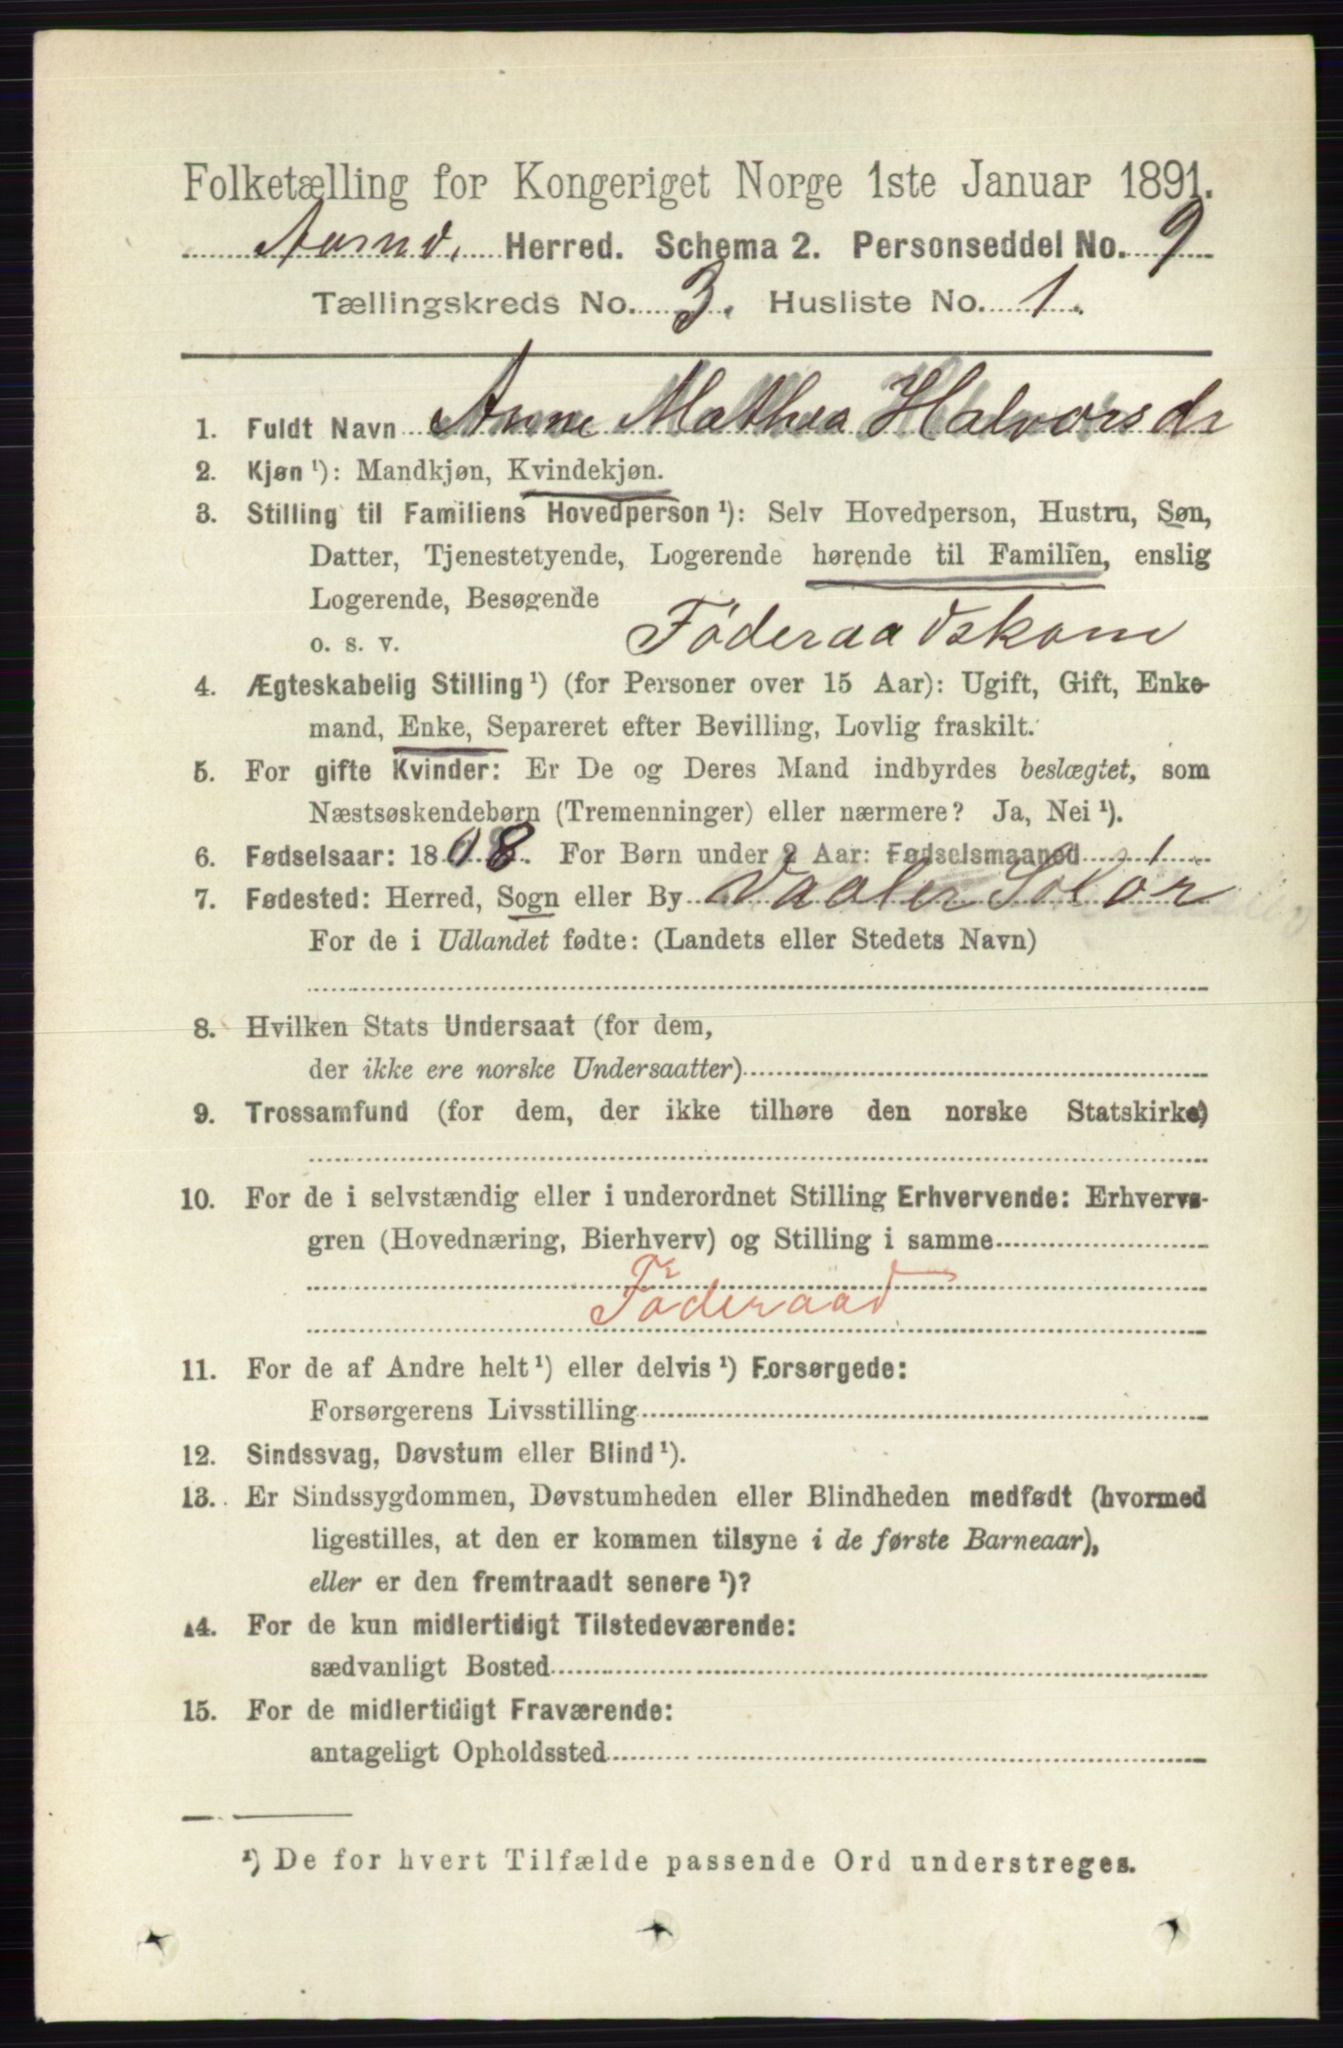 Folketælling for Kongeriget Norge 1ste Januar 1891.
Herred. Schema 2. Personseddel No. 9
Tællingskreds No. 3. Husliste No. 1.
1. Fuldt Navn Anne Mathea Halvorsdr
2. Kjøn ¹): Mandkjøn, Kvindekjøn.
3. Stilling til Familiens Hovedperson ¹): Selv Hovedperson, Hustru, Søn,
Datter, Tjenestetyende, Logerende hørende til Familien, enslig
Logerende, Besøgende
o. s. v. Föderaadskone
4. Ægteskabelig Stilling ¹) (for Personer over 15 Aar): Ugift, Gift, Enke-
mand, Enke, Separeret efter Bevilling, Lovlig fraskilt.
5. For gifte Kvinder: Er De og Deres Mand indbyrdes beslægtet, som
Næstsøskendebørn (Tremenninger) eller nærmere? Ja, Nei ¹).
6. Fødselsaar: 1808. For Børn under 2 Aar: Fødselsmaaned
7. Fødested: Herred, Sogn eller By Vaaler Solör
For de i Udlandet fødte: (Landets eller Stedets Navn)
8. Hvilken Stats Undersaat (for dem,
der ikke ere norske Undersaatter)
9. Trossamfund (for dem, der ikke tilhøre den norske Statskirke)
10. For de i selvstændig eller i underordnet Stilling Erhvervende: Erhvervs-
gren (Hovednæring, Bierhverv) og Stilling i samme
Föderaad
11. For de af Andre helt ¹) eller delvis ¹) Forsørgede:
Forsørgerens Livsstilling
12. Sindssvag, Døvstum eller Blind ¹).
13. Er Sindssygdommen, Døvstumheden eller Blindheden medfødt (hvormed
ligestilles, at den er kommen tilsyne i de første Barneaar),
eller er den fremtraadt senere ¹)?
14. For de kun midlertidigt Tilstedeværende:
sædvanligt Bosted
15. For de midlertidigt Fraværende:
antageligt Opholdssted
¹) De for hvert Tilfælde passende Ord understreges.